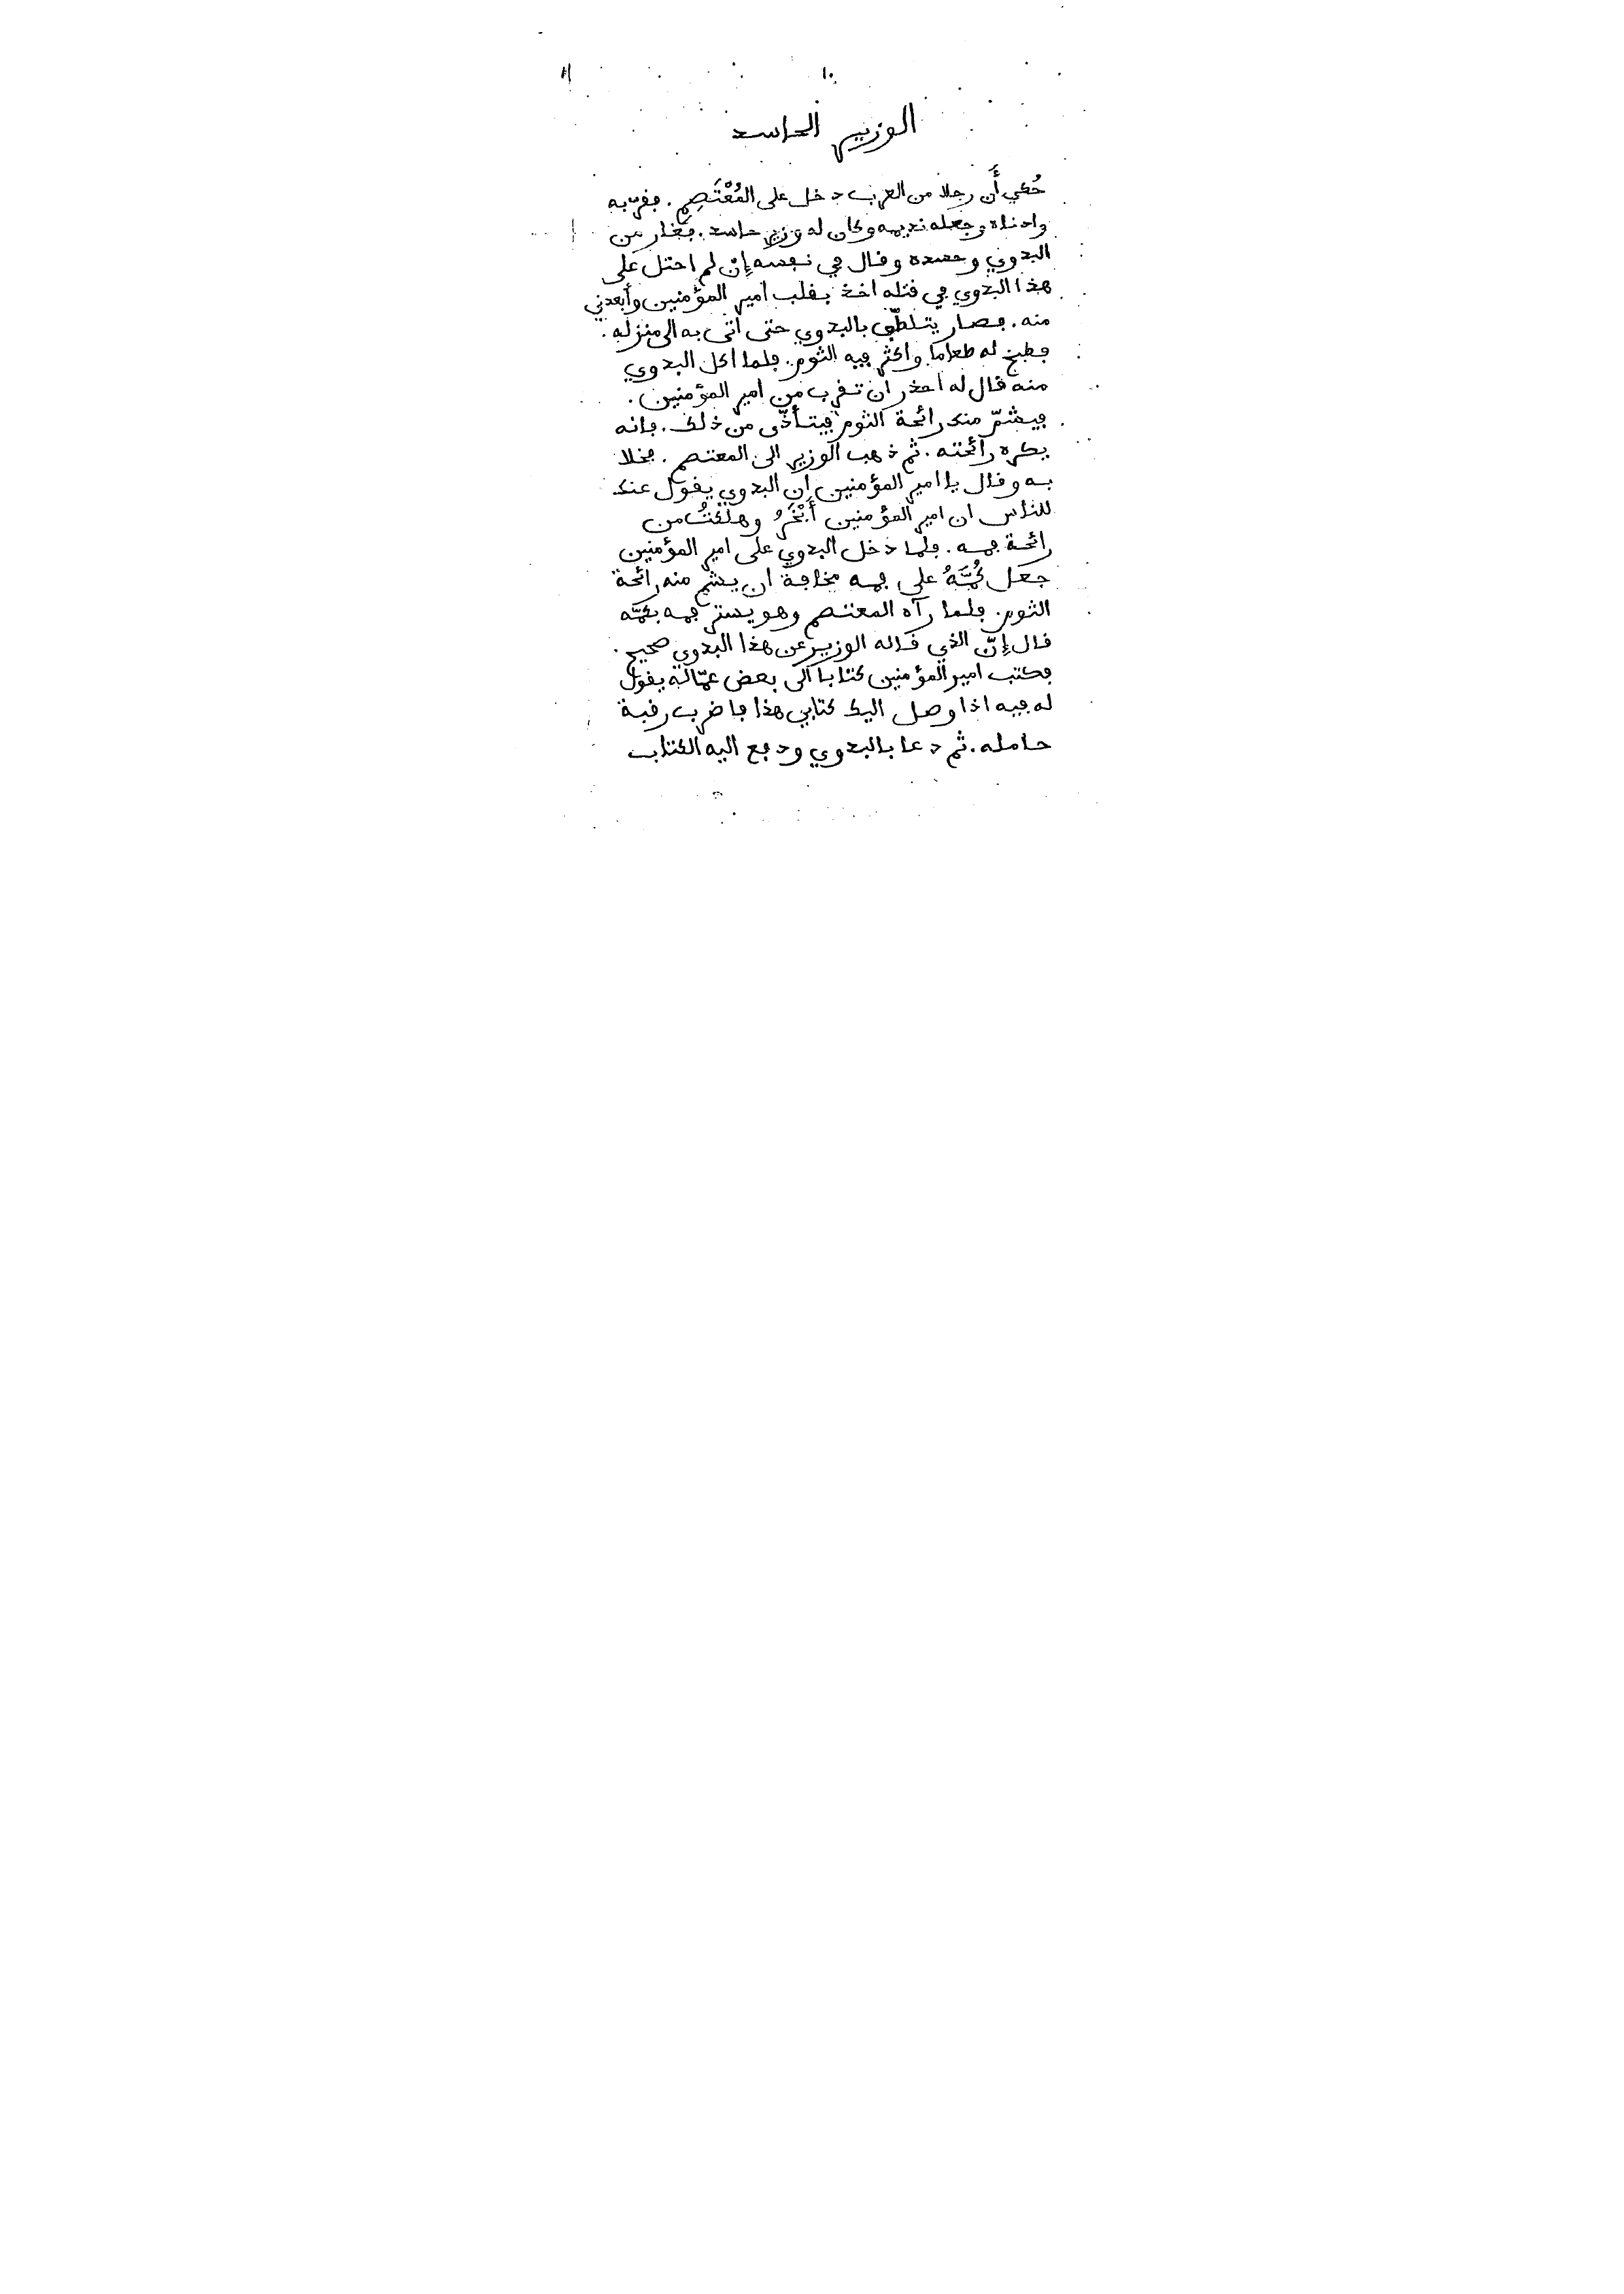 ١٠
الوزير الحاسد
حُكي أَن رجلا من العرب دخل على المُعْتَصِم. فقرّبه
وادناه وجعله نديمه وكان له وزير حاسد. فغار من
البدوي وحسده وقال في نفسه إن لم احتل على
هذا البدوي في قتله اخذ بقلب امير المؤمنين وأبعدني
منه. فصار يتلطّف بالبدوي حتى اتى به الى منزله.
فطبخ له طعاما واكثر فيه الثوم. فلما اكل البدوي
منه قال له احذر ان تقرب من امير المؤمنين.
فيشمّ منك رائحة الثوم فيتأذّى من ذلك. فانه
يكره رائحته. ثم ذهب الوزير الى المعتصم. فخلا
به وقال يا امير المؤمنين إن البدوي يقول عنك
للناس ان امير المؤمنين أَبْخَرُ وهلكتُ من
رائحة فمه. فلما دخل البدوي على امير المؤمنين
جعل كُمَّهُ على فمه مخافة ان يشم منه رائحة
الثوم. فلما رآه المعتصم وهو يستر فمه بكمّه
قال إنّ الذي قاله الوزير عن هذا البدوي صحيح.
فكتب امير المؤمنين كتابا الى بعض عمّاله يقول
له فيه اذا وصل اليك كتابي هذا فاضرب رقبة
حامله. ثم دعا بالبدوي ودفع اليه الكتاب